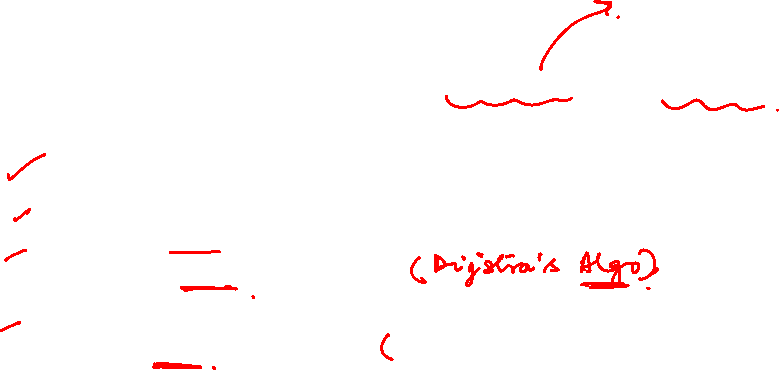 (Dijstra's Algo)
(